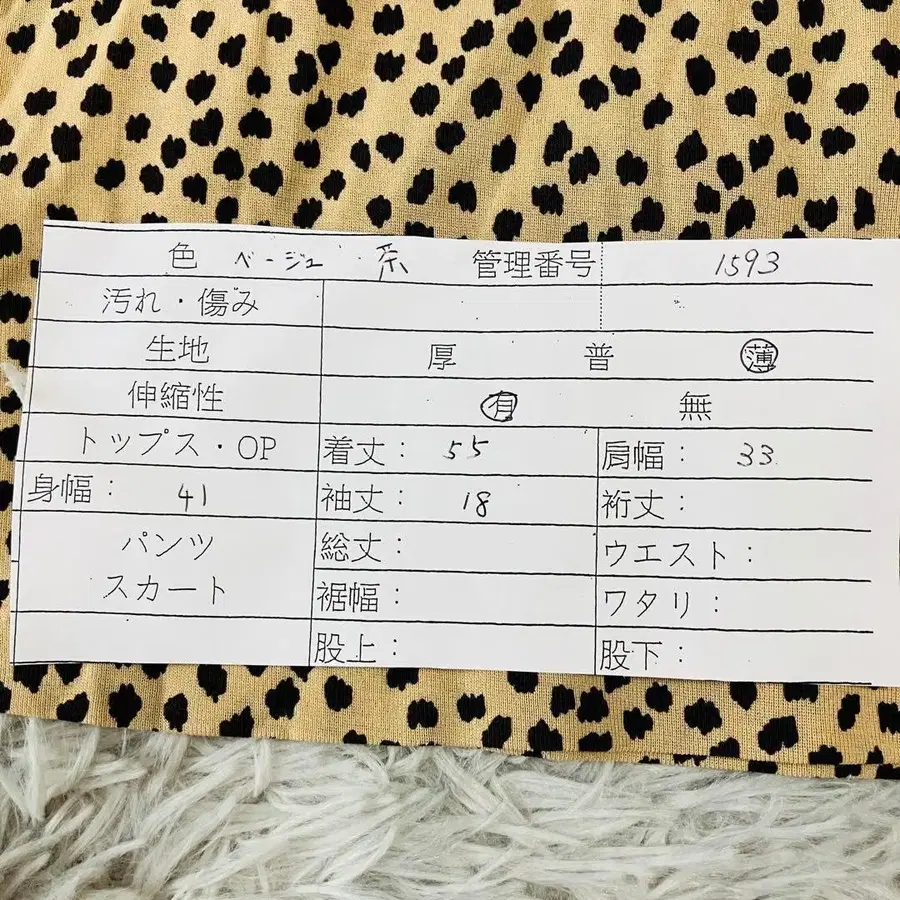 色 ベージュ 系 管理番号 1593
汚れ・傷み
生地 厚 普 薄
伸縮性 有 無
トップス・OP 着丈： 55 肩幅： 33
身幅： 41 袖丈： 18 裄丈：
パンツ 総丈： ウエスト：
スカート 裾幅： ワタリ：
股上： 股下：